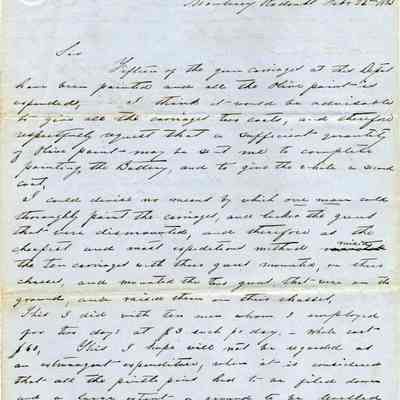 Monterey Redoubt Feby
Sir
Fifteen of the gun carriages at this Depot
have been painted and all the Olive paint is
expended, I think it would be advisable
to give all the carriages two coats, and therefore
respectfully request that a sufficient quantity
of Olive paint may be sent me to complete
painting the Battery, and to give the whole a second
coat.
I could devise no means by which one man could
thoroughly paint the carriages, and lacker the guns
that were dismounted, and therefore as the
cheapest and most expeditious method
the ten carriages with their guns mounted, on their
chasses, and mounted the ten guns that were on the
ground, and raised them on their chasses,
This I did with ten men whom I employed
for two days at $3 each pr day, – whole cost
$60, This I hope will not be regarded as
an extravagant expenditure, when it is considered
that all the pintle pins had to be filed down
and a large extent of ground to be levelled